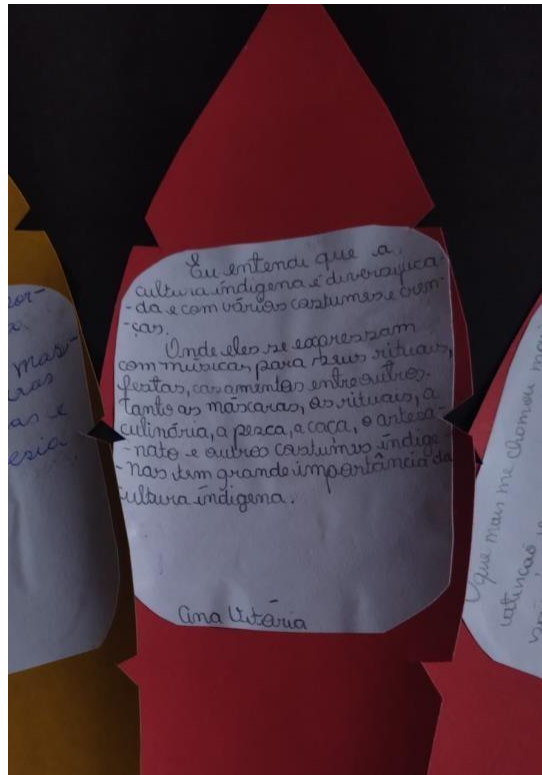 Eu entendi que a
cultura indígena é diversifica-
-da e com vários costumes e cren-
-ças.
Onde eles se expressam
com músicas para seus rituais,
festas, casamentos entre outros.
tanto as máscaras, os rituais, a
culinária, a pesca, a caça, o artesa-
-nato e outros costumes indíge-
-nas tem grande importância da
cultura indígena.
Ana Vitória
mas-
as e
esia
O que mais me chamou mai